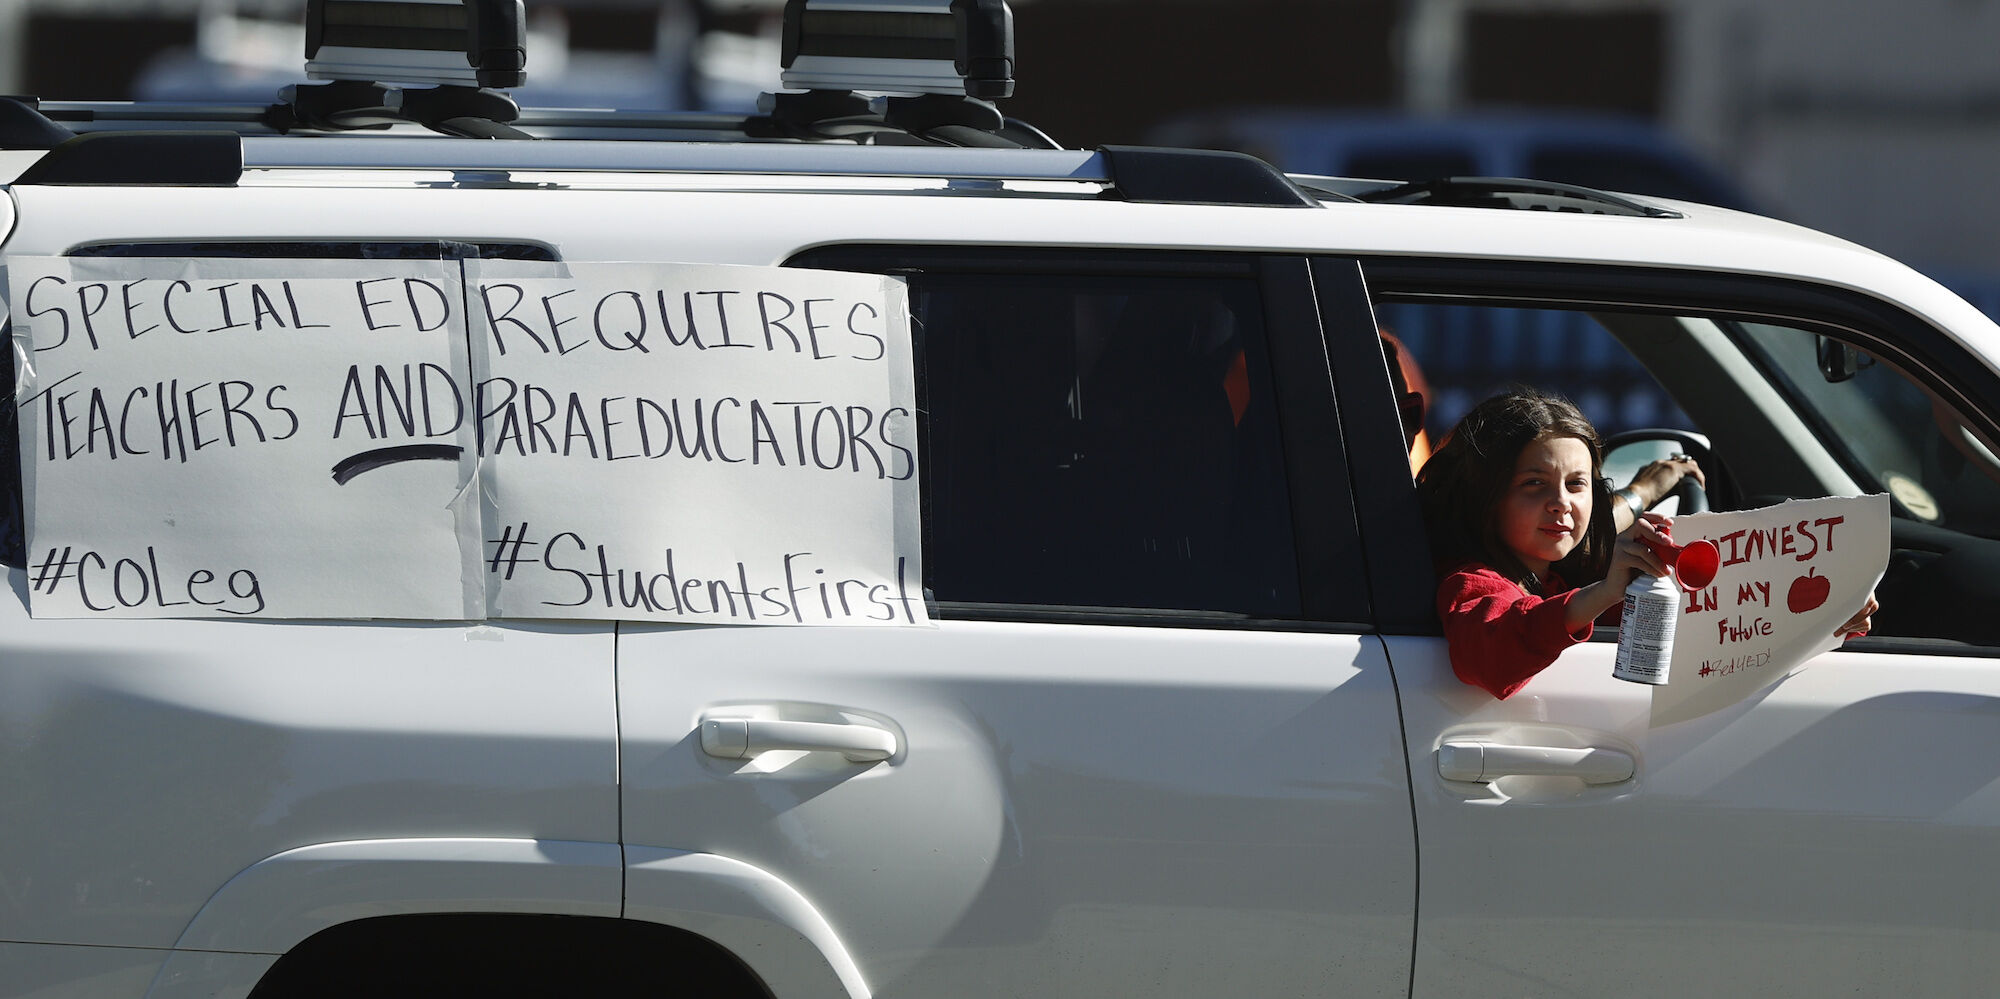 SPECIAL ED REQUIRES
TEACHERS AND PARAEDUCATORS
#COLeg #StudentsFirst
INVEST
IN MY
Future
#Red4ED!